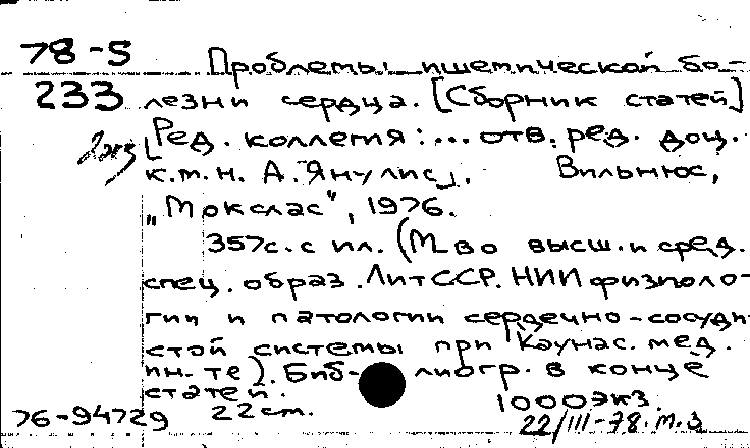 78-5 Проблемы ишемической бо-
233 лезни сердца. [Сборник статей]
2экз [Ред. коллегия: ... отв. ред. доц.
к.м.н. А. Янулис]. Вильнюс,
„Мокслас", 1976.
357с. с ил. (М-во высш. и сред.
спец. образ. ЛитССР. НИИ физиоло-
гии и патологии сердечно-сосуди-
стой системы при Каунас. мед.
ин-те). Библиогр. в конце
статей.
76-94729 22см. 1000экз
22/III-78. М.З